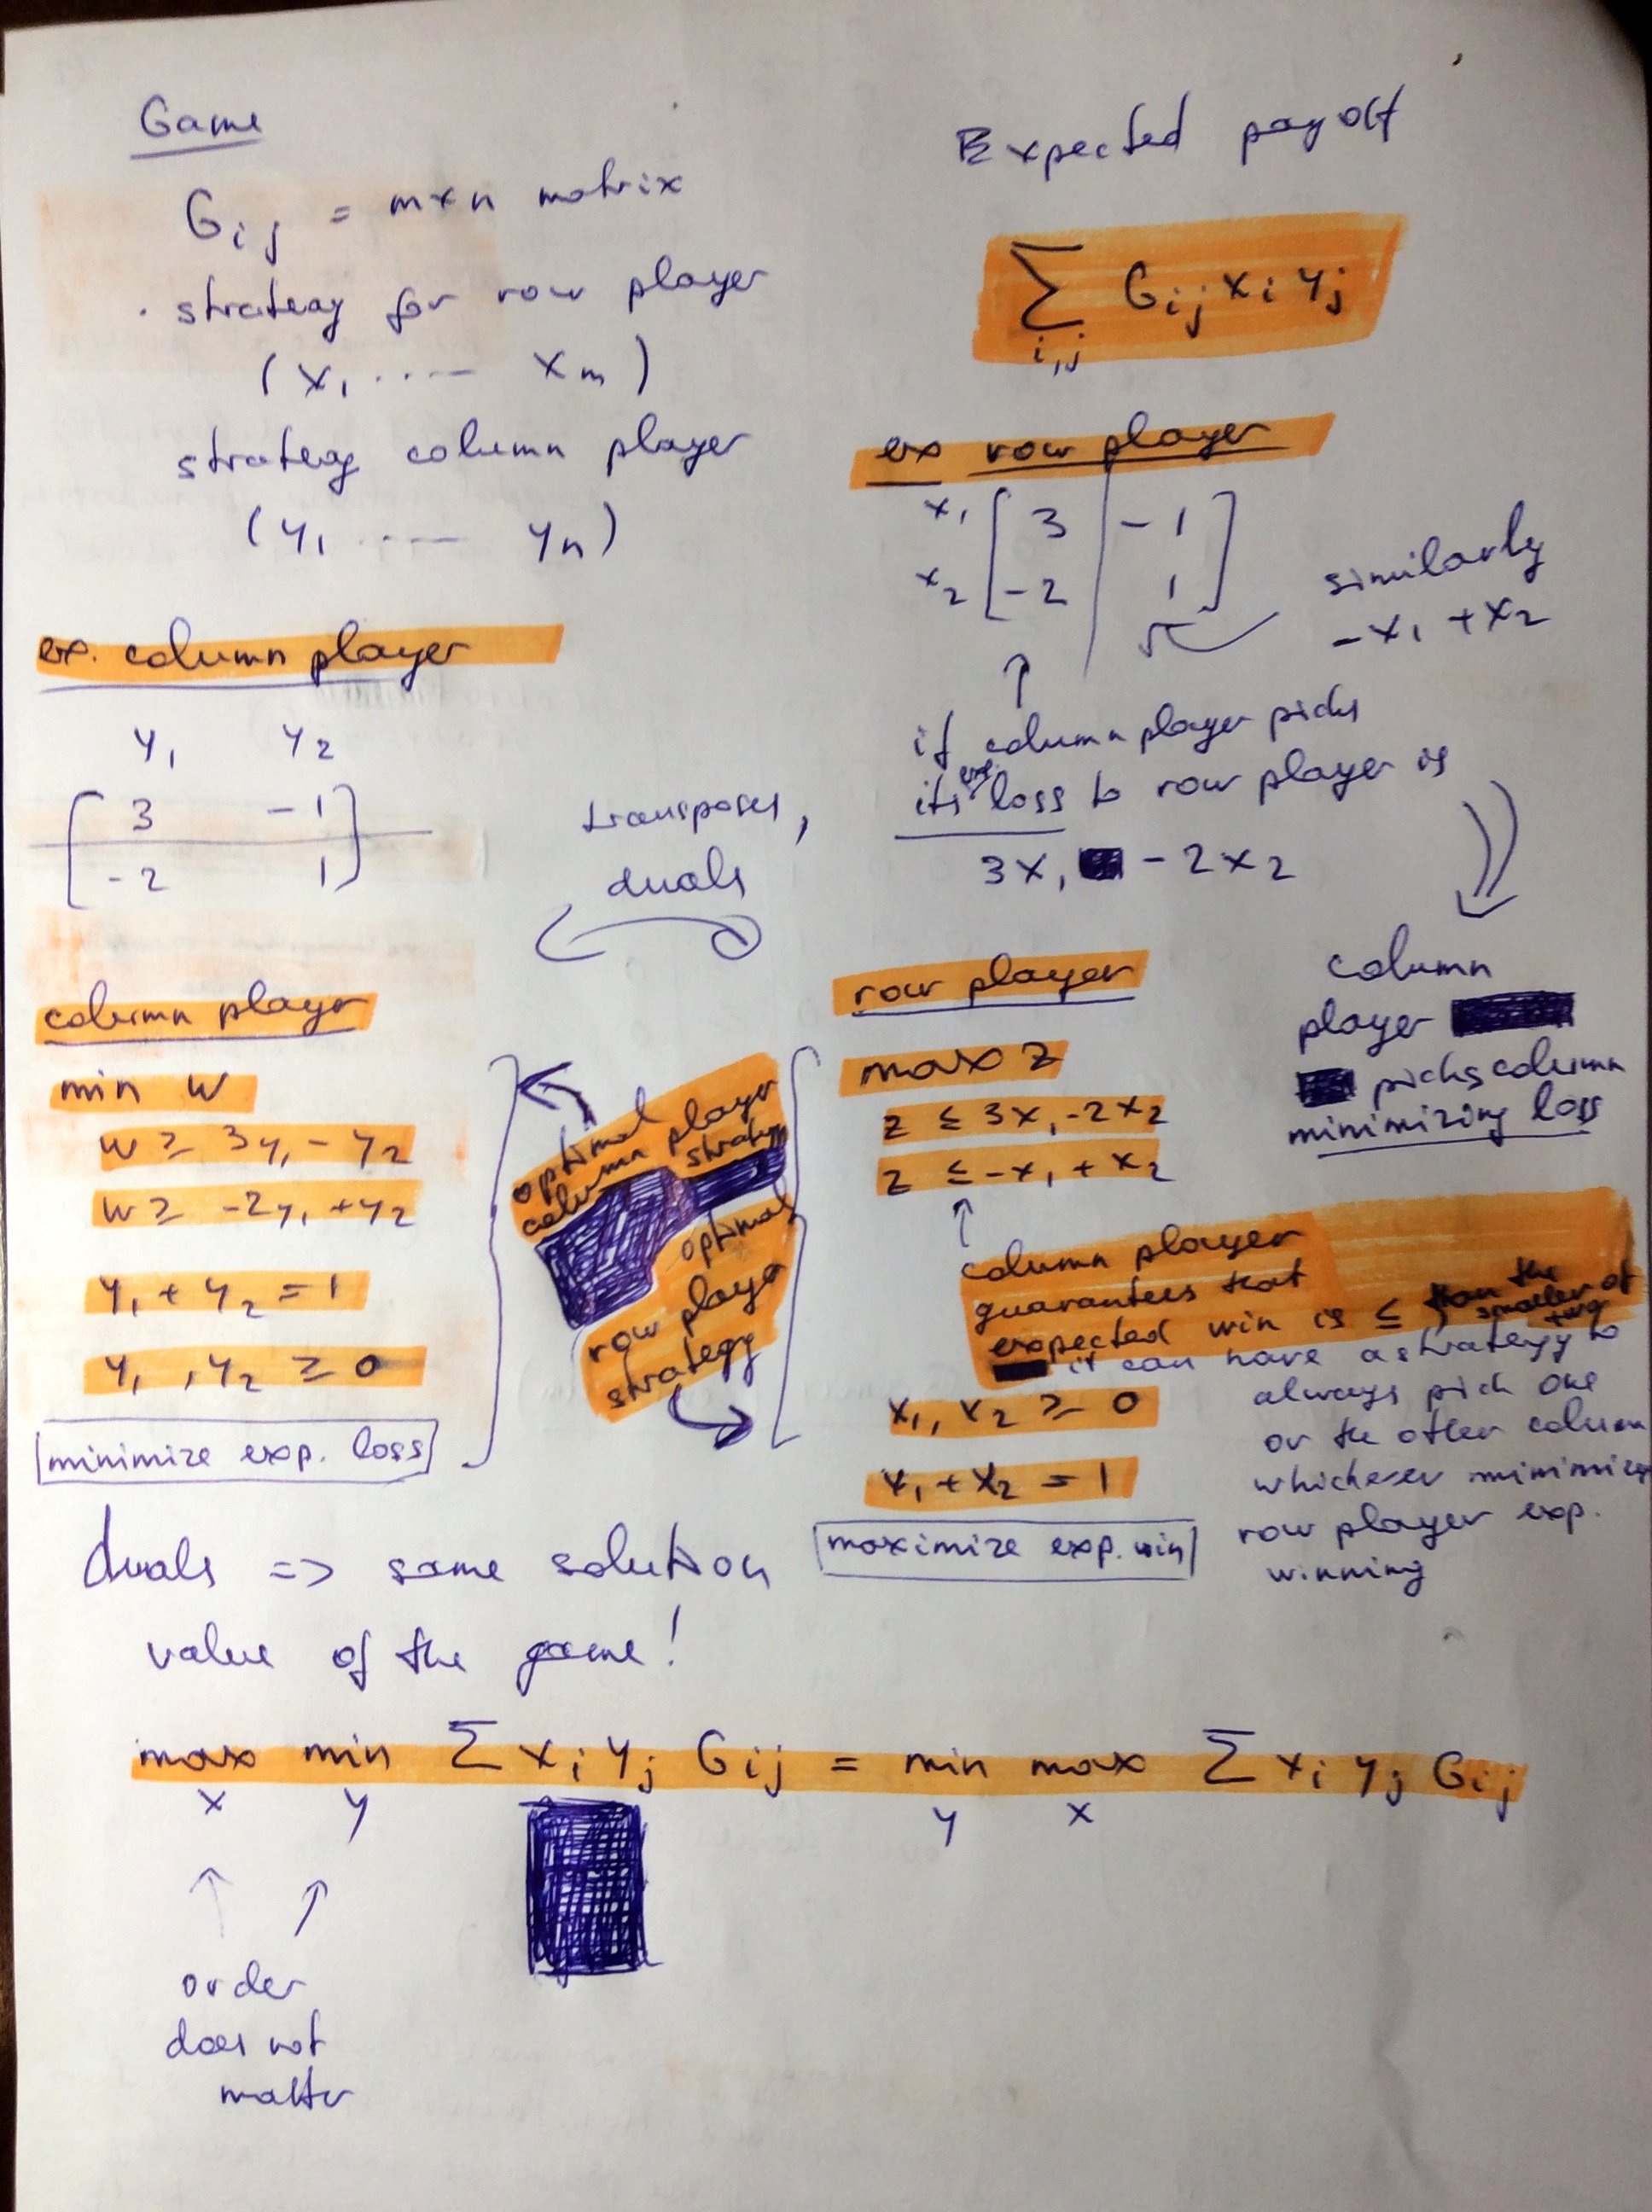 Game
G i j = m x n matrix
. strategy for row player
(x1 .... xm)
strategy column player
(y1 .... yn)
Expected payoff
∑ Gij xi yj
i,j
ex row player
x1 [ 3 | -1 ]
x2 [ -2 | 1 ]
similarly
-x1 + x2
if column player picks
its exp. loss to row player is
3x1 - 2x2
column
player
picks column
minimizing loss
ex. column player
y1 y2
[ 3 -1 ]
[ -2 1 ]
transposes,
duals
column player
min w
w ≥ 3y1 - y2
w ≥ -2y1 + y2
y1 + y2 = 1
y1, y2 ≥ 0
minimize exp. loss
optimal
column player
strategy
optimal
row player
strategy
row player
max z
z ≤ 3x1 - 2x2
z ≤ -x1 + x2
column player
guarantees that
expected win is ≤ than the
smaller of
two
it can have a strategy to
always pick one
or the other column
whichever minimizes
row player exp.
winning
x1, x2 ≥ 0
x1 + x2 = 1
maximize exp. win
duals => same solution
value of the game!
max min ∑ xi yj Gij = min max ∑ xi yj Gij
x y y x
order
does not
matter